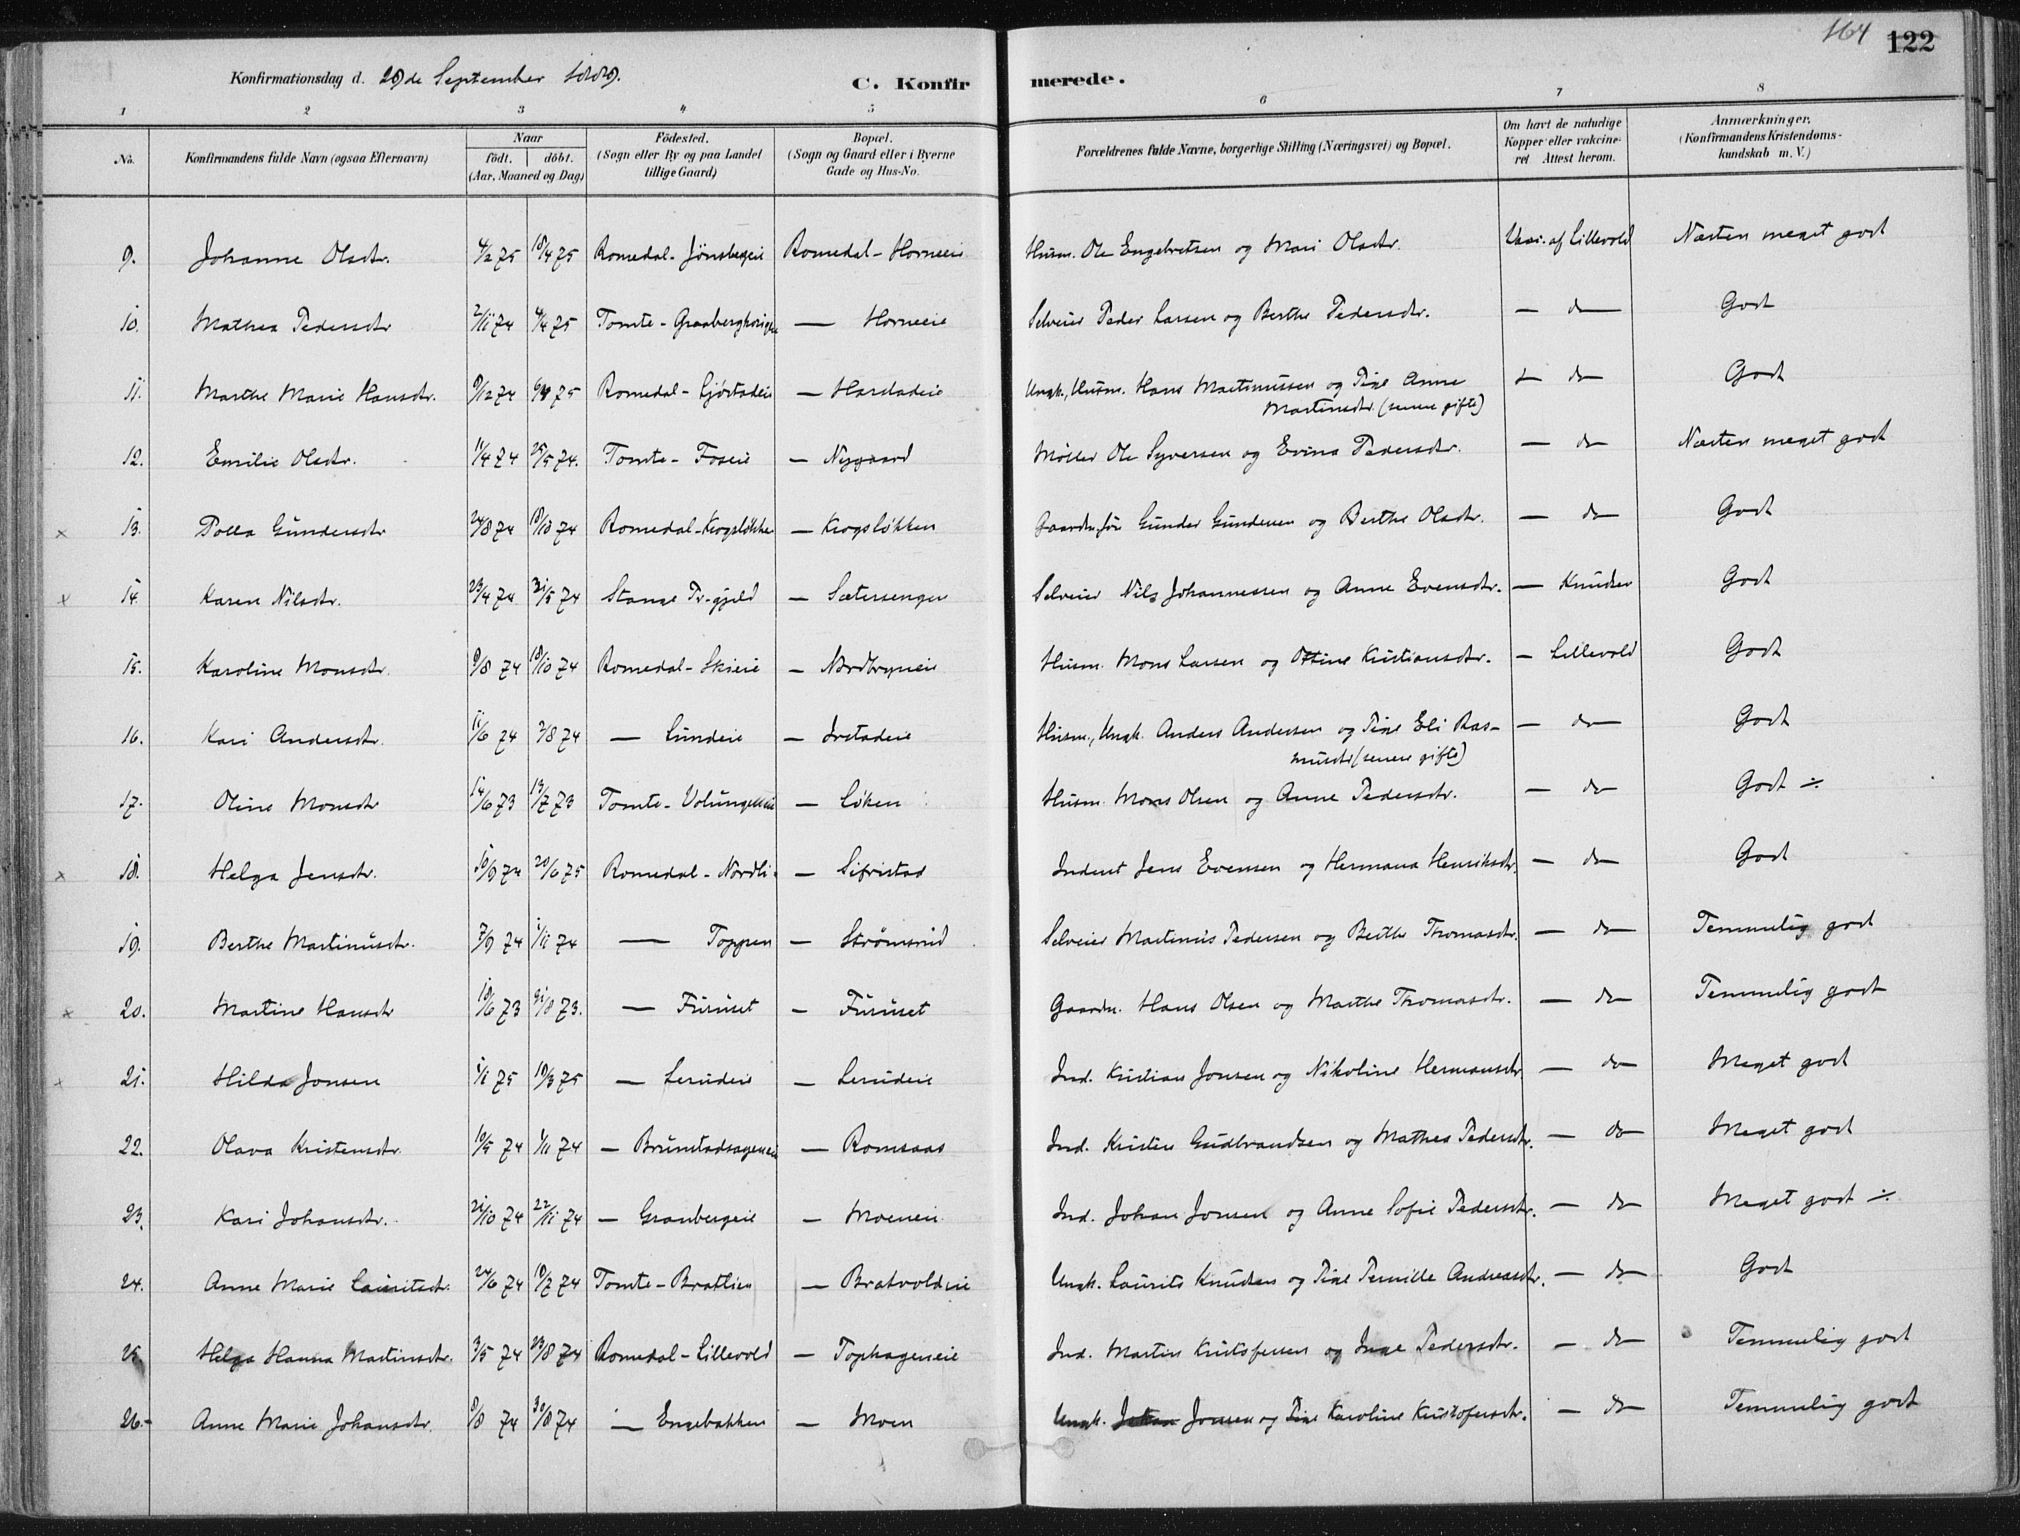 164 122
Konfirmationsdag d. 29de September 1889. C. Konfirmerede.
1 2 3 4 5 6 7 8
No. Konfirmandens fulde Navn (ogsaa Efternavn) Naar födt. döbt. (Aar, Maaned og Dag) Födested. (Sogn eller By og paa Landet tillige Gaard) Bopæl. (Sogn og Gaard eller i Byerne Gade og Hus-No. Forældrenes fulde Navne, borgerlige Stilling (Næringsvei) og Bopæl. Om havt de naturlige Kopper eller vakcineret Attest herom. Anmærkninger. (Konfirmandens Kristendomskundskab m. V.)
9. Johanne Olsdtr. 4/2 75 18/4 75 Romedal - Jönsbergeie Romedal - Horneeie Husm. Ole Engebretsen og Mari Olsdtr. Vac. af Lillevold Næsten meget godt
10. Mathea Pedersdtr 2/11 74 4/4 75 Tomte - — Horneeie Selveier Peder Larsen og Berthe Pedersdtr. — do Godt
11. Marthe Marie Hansdtr. 9/12 74 75 Romedal - Gjörstadeie — Harstadeie Ungk., Husm. Hans Martinussen og Pige Anne
Martinsdtr. (senere gifte) — do Godt
12. Emilie Olsdtr. 11/4 74 25/5 74. Tomte - Foseie — Nygaard Møller Ole Syversen og Evina Pedersdtr. — do Næsten meget godt
13. Polla Gundersdtr 24/8 74 18/10 74 Romedal - Krogsløkken — Krogsløkken Gunder Gundersen og Berthe Olsdtr. — do Godt
14. Karen Nilsdtr. 23/4 74 31/5 74 Stange Pr-gjeld — Sætersengen Selveier Nils Johannessen og Anne Evensdtr. — Knudsen Godt
15. Karoline Monsdtr. 9/8 74 18/10 74 Romedal - Skieie — Nordbryneie Husm. Mons Larsen og Ottine Kristiansdtr. — Lillevold Godt
16. Kari Andersdtr. 11/6 74 2/8 74 — Lundeie — Ivstadeie Husm., Ungk. Anders Andersen og Pige Eli Ras-
musdtr (senere gifte) — do Godt
17. Oline Monsdtr 14/6 73 13/7 73 Tomte - — Løken Husm. Mons Olsen og Anne Pedersdtr. — do Godt ÷
18. Helga Jensdtr. 10/9 74 20/6 75 Romedal - Nordli — Sifristad Inderst Jens Evensen og Hermana Henriksdtr. — do Godt
19. Berthe Martinusdtr. 7/9 74 1/11 74 — Toppen — Strömsrud Selveier Martinus Pedersen og Berthe Thomasdtr. — do Temmelig godt
20. Martine Hansdtr 18/6 73 31/8 73. — Furuset — Furuset Gaardm. Hans Olsen og Marthe Thomasdtr. — do Temmelig godt
21. Hilda Jonsen 1/1 75 19/3 75 — Lerudeie — Lerudeie Ind. Kristian Jonsen og Nikoline Hermansdtr — do Meget godt
22. Olava Kristensdtr. 10/5 74 1/11 74 — Brunstadhageneie — Romsaas Ind. Kristen Gudbrandsen og Mathea Pedersdtr. — do Meget godt
23. Kari Johansdtr. 21/10 74 22/11 74 — Granbergeie — Moeneie Ind. Johan Jonsen og Anne Sofie Pedersdtr. — do Meget godt ÷
24. Anne Marie Lauritsdtr. 24/6 74 19/7 74 Tomte - Bratlien — Bratvoldeie Ungk. Laurits Knudsen og Pige Pernille Andreasdtr. — do Godt
25. Helga Hanna Martinsdtr. 3/5 74 23/8 74 Romedal - Lillevold — Tophageneie Ind. Martin Kristofersen og Inge Pedersdtr. — do Temmelig godt
26. Anne Marie Johansdtr. 8/8 74 30/8 74 — Engebakken — Moen Ungk. Johan Jonsen og Pige Karoline Kristofersdtr. — do Temmelig godt